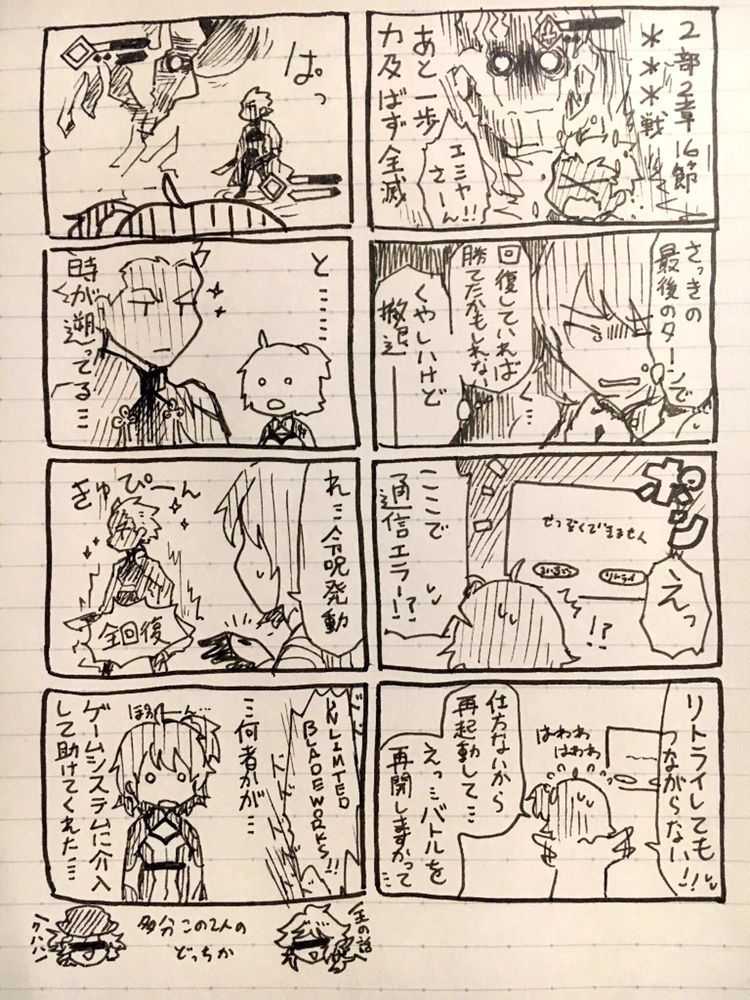 2部2章16節
***戦
あと一歩
力及ばず 全滅
エミヤ
さーん!!
さっきの
最後のターンで
回復していれば
勝てたかもしれない
く…
くやしいけど
撤退
ポン
せつぞくできません
リトライ
えっ
!?
ここで
通信エラー!?
リトライしても
つながらない!!
はわわ
はわわ
仕方ないから
再起動して…
えっ…バトルを
再開しますかって
ぱっ
と……
時が遡ってる…
れ…令呪発動
きゅぴーん
全回復
UNLIMITED
BLADE WORKS!!
ドドドド
…何者かが…
ほわーん…
ゲームシステムに介入
して助けてくれた…
王の話
多分この2人の
どっちか
クハハハ